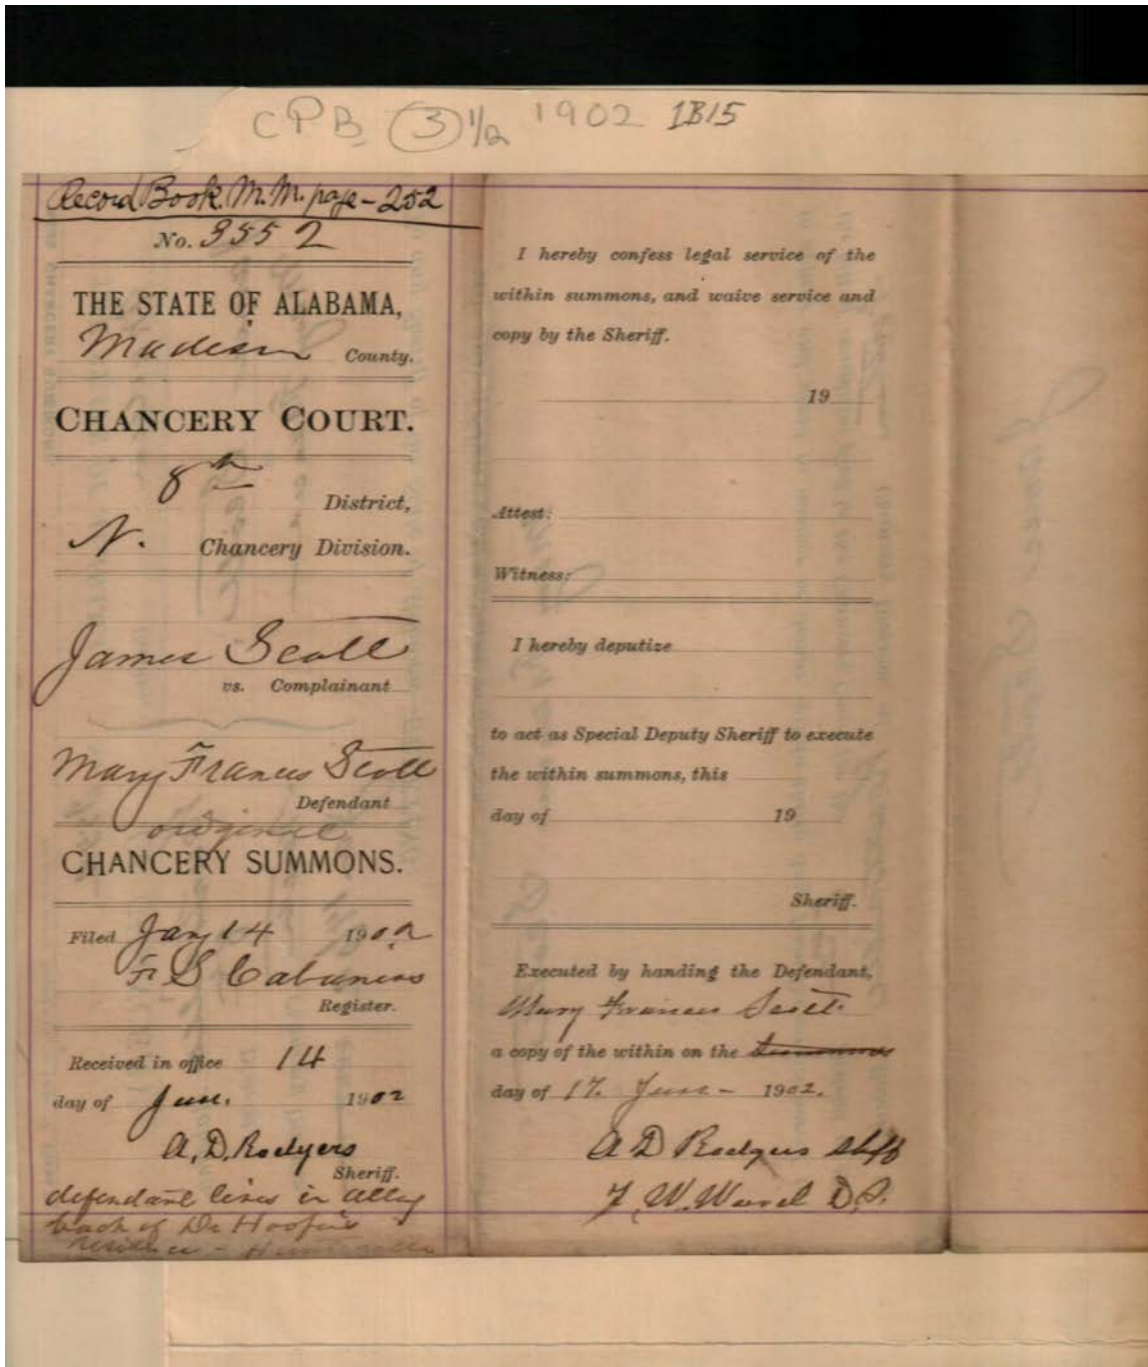 CPB (3) 1/2 1902 1B15
Record Book. M. M. page - 252
No. 3552
THE STATE OF ALABAMA,
Madison County.
CHANCERY COURT.
8th District,
N. Chancery Division.
James Scott
vs. Complainant
Mary Frances Scott
Defendant
original
CHANCERY SUMMONS.
Filed Jany 14 1902
F. S Cabaniss
Register.
Received in office 14
day of Jan. 1902
A. D. Rodgers
Sheriff.
defendant lives in alley
back of Dr
residence -
I hereby confess legal service of the
within summons, and waive service and
copy by the Sheriff.
19
Attest:
Witness:
I hereby deputize
to act as Special Deputy Sheriff to execute
the within summons, this
day of 19
Sheriff.
Executed by handing the Defendant,
Mary Frances Scott
a copy of the within on the
day of 17. Jan - 1902.
A D Rodgers Shff
W. Ward D. S.